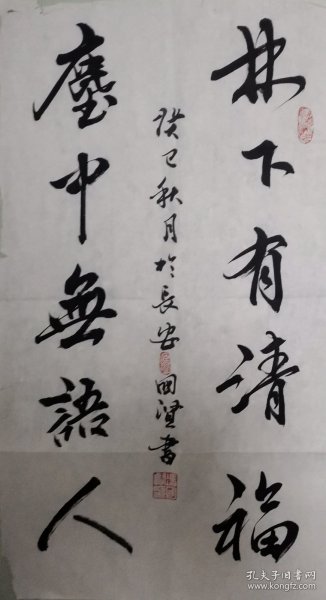 林下有清福
塵中無語人
癸巳秋月於長安
书
孔夫子旧书网